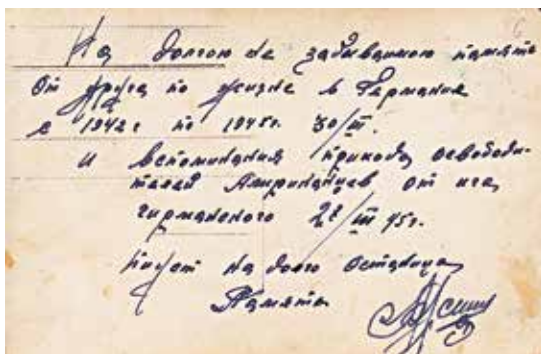 На долгою не забиваимою память
От друга по жизне в Германия
с 1942 г по 1945 г. 30/III.
и вспоминания прихода освободи-
телей Амириканцев от ига
гирманского 28/III 45 г.
на долго останица
Память